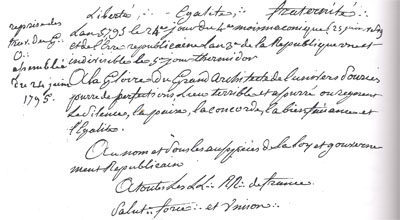 Liberté ; Egalité ; fraternité
reprise des
trav. du G∴
O∴
assemblée
du 24 juin
1795.
L'an 5795 le 24e jour du 4e mois maçonique (24 juin 1795
et de l'ère republicaine L'an 3e de la Republique une et
indivisible le 5 jour thermidor
A la Gloire du Grand architecte de l'univers
de perfections, Lieu terrible et assuré ou regnent
Le Silence, la paix, la concorde, la bienfaisance et
l'Egalité.
Au nom et sous les auspices de la loy et gouverne
ment Republicain
A toutes les LL∴ RR∴ de france
Salut∴ force∴ et Union∴